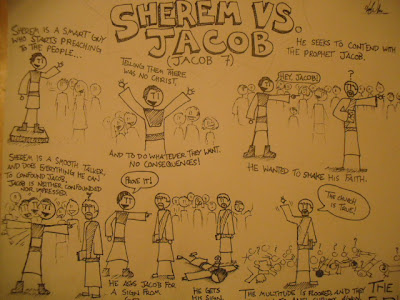 SHEREM VS.
JACOB
(JACOB 7)
SHEREM IS A SMART GUY
WHO STARTS PREACHING
TO THE PEOPLE...
TELLING THEM THERE
WAS NO CHRIST,
AND TO DO WHATEVER THEY WANT.
NO CONSEQUENCES!
HE SEEKS TO CONTEND WITH
THE PROPHET JACOB.
HEY, JACOB!
?
HE WANTED TO SHAKE HIS FAITH.
SHEREM IS A SMOOTH TALKER,
AND DOES EVERYTHING HE CAN
TO CONFOUND JACOB.
JACOB IS NEITHER CONFOUNDED
NOR IMPRESSED.
PROVE IT!
HE ASKS JACOB FOR
A SIGN FROM
HE GETS
HIS SIGN
THE CHURCH
IS TRUE!
THE MULTITUDE IS
AND THEY
THE